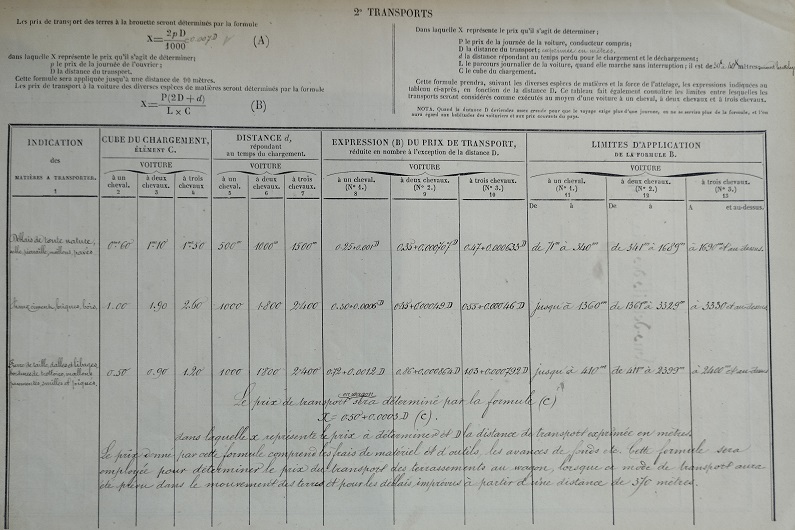 2e TRANSPORTS
Les prix de transport des terres à la brouette seront déterminés par la formule
X = 2pD / 1000 (A)
dans laquelle X représente le prix qu'il s'agit de déterminer;
p le prix de la journée de l'ouvrier;
D la distance du transport.
Cette formule sera appliquée jusqu'à une distance de mètres.
Les prix de transport à la voiture des diverses espèces de matières seront déterminés par la formule
X = P(2D + d) / L × C (B)
Dans laquelle X représente le prix qu'il s'agit de déterminer;
P le prix de la journée de la voiture, conducteur compris;
D la distance du transport;
d la distance répondant au temps perdu pour le chargement et le déchargement;
L le parcours journalier de la voiture, quand elle marche sans interruption; il est de
C le cube du chargement.
Cette formule prendra, suivant les diverses espèces de matières et la force de l'attelage, les expressions indiquées au
tableau ci-après, en fonction de la distance D. Ce tableau fait également connaître les limites entre lesquelles les
transports seront considérés comme exécutés au moyen d'une voiture à un cheval, à deux chevaux et à trois chevaux.
NOTA. Quand la distance D deviendra assez grande pour que le voyage exige plus d'une journée, on ne se servira plus de la formule, et l'on
aura égard aux habitudes des voituriers et aux prix courants du pays.
INDICATION
des
MATIÈRES A TRANSPORTER.
1
CUBE DU CHARGEMENT,
ÉLÉMENT C.
VOITURE
à un cheval. 2
à deux chevaux. 3
à trois chevaux. 4
DISTANCE d,
répondant
au temps du chargement.
VOITURE
à un cheval. 5
à deux chevaux. 6
à trois chevaux. 7
EXPRESSION (B) DU PRIX DE TRANSPORT,
réduite en nombre à l'exception de la distance D.
VOITURE
à un cheval. (No 1.) 8
à deux chevaux. (No 2.) 9
à trois chevaux. (No 3.) 10
LIMITES D'APPLICATION
DE LA FORMULE B.
VOITURE
à un cheval. (No 1.) 11
à deux chevaux. (No 2.) 12
à trois chevaux. (No 3.) 13
De à
De à
A et au-dessus.
Déblais de toute nature,
0m60 1m10 1m50 500m 1000m 1500m 0.25+0.001D 0.35+0.000707D 0.47+0.000633D de 71m à 340m de 341m à 1689m à 1690m et au dessus.
1.00 1.90 2.60 1000 1800 2400 0.30+0.0006D 0.45+0.00049D 0.55+0.00046D jusqu'à 1360m de 1361m à 3329m à 3330 et au dessus
0.50 0.90 1.20 1000 1800 2400 0.12+0.0012D 0.86+0.000364D 1.03+0.000792D jusqu'à 410m de 411m à 2399m à 2400m et au dessus
Le prix de transport en wagon sera déterminé par la formule (C)
X = 0.50+0.0003D (C).
dans laquelle x représente le prix à déterminer et D la distance de transport exprimée en mètres.
Le prix donné par cette formule comprend les frais de matériel et d'outils, les avances de fonds etc. Cette formule sera
employée pour déterminer le prix du transport des terrassements au wagon, lorsque ce mode de transport aura
été prévu dans le mouvement des terres et pour les déblais imprévus à partir d'une distance de 570 mètres.